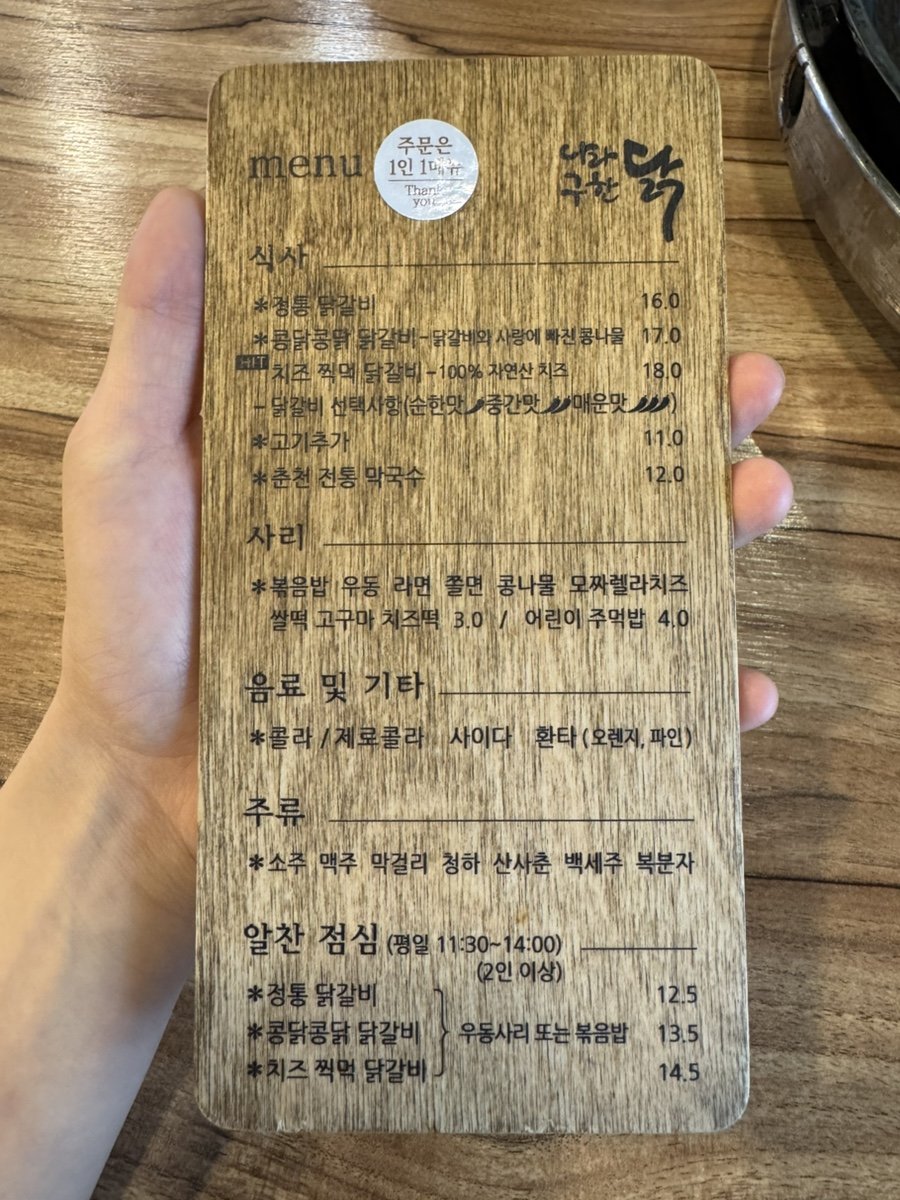 menu
주문은
1인 1메뉴
Thank
you
나라
구한 닭
식사
*정통 닭갈비 16.0
*콩닭콩닭 닭갈비 - 닭갈비와 사랑에 빠진 콩나물 17.0
HIT 치즈 찍먹 닭갈비 - 100% 자연산 치즈 18.0
- 닭갈비 선택사항(순한맛 중간맛 매운맛)
*고기추가 11.0
*춘천 전통 막국수 12.0
사리
*볶음밥 우동 라면 쫄면 콩나물 모짜렐라치즈
쌀떡 고구마 치즈떡 3.0 / 어린이 주먹밥 4.0
음료 및 기타
*콜라 / 제로콜라 사이다 환타 (오렌지, 파인)
주류
*소주 맥주 막걸리 청하 산사춘 백세주 복분자
알찬 점심 (평일 11:30~14:00)
(2인 이상)
*정통 닭갈비 12.5
*콩닭콩닭 닭갈비 우동사리 또는 볶음밥 13.5
*치즈 찍먹 닭갈비 14.5